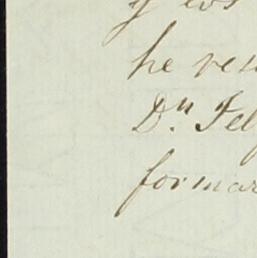 he res
Dn. Fel
formar